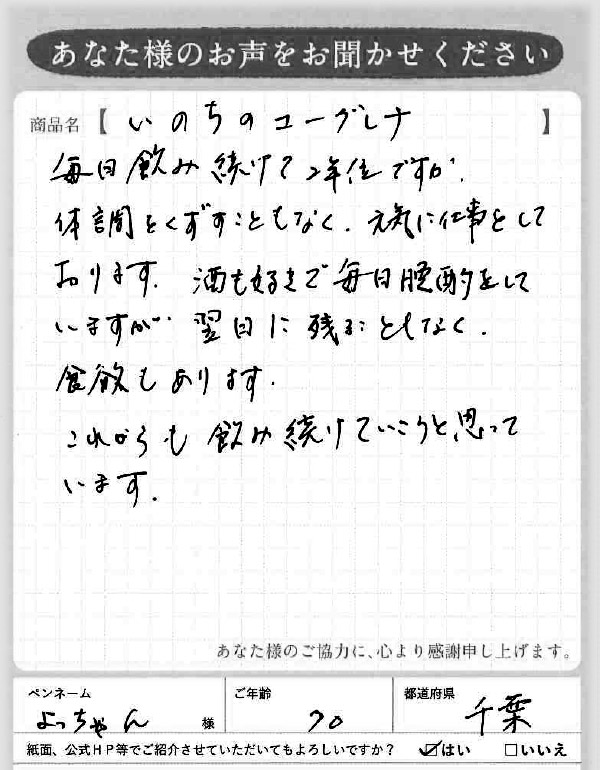 あなた様のお声をお聞かせください
商品名【 いのちのユーグレナ 】
毎日飲み続けて2年位ですが、
体調をくずすこともなく、元気に仕事をして
おります。酒も好きで毎日晩酌をして
いますが翌日に残ることもなく、
食欲もあります。
これからも飲み続けていこうと思って
います。
あなた様のご協力に、心より感謝申し上げます。
ペンネーム ご年齢 都道府県
よっちゃん 様 70 千葉
紙面、公式HP等でご紹介させていただいてもよろしいですか? ☑はい □いいえ